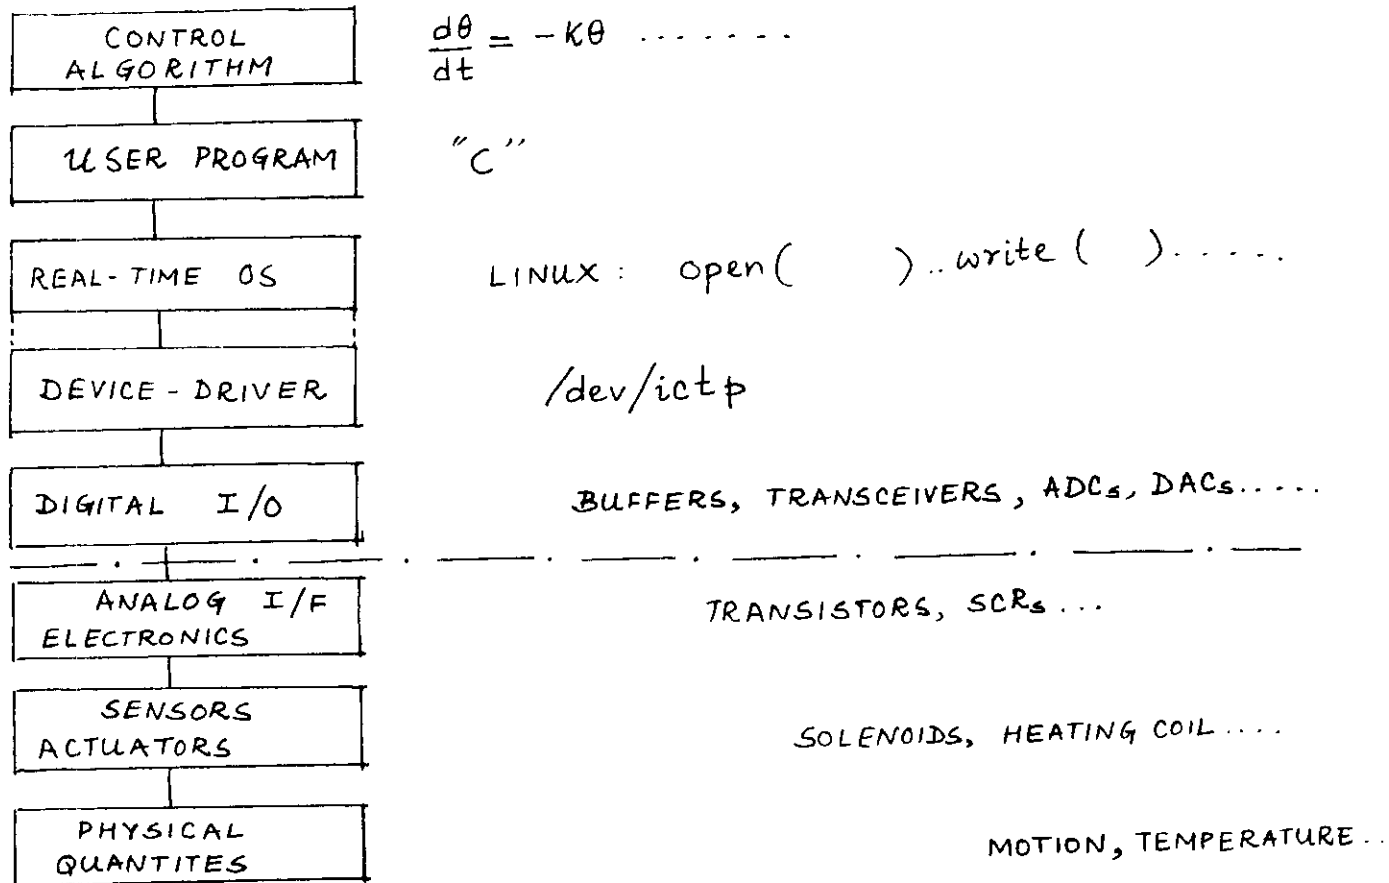 CONTROL
ALGORITHM
dθ/dt = -Kθ .......
USER PROGRAM
"C"
REAL-TIME OS
LINUX: open( )..write ( ).....
DEVICE-DRIVER
/dev/ictp
DIGITAL I/O
BUFFERS, TRANSCEIVERS, ADCs, DACs.....
ANALOG I/F
ELECTRONICS
TRANSISTORS, SCRs ...
SENSORS
ACTUATORS
SOLENOIDS, HEATING COIL ....
PHYSICAL
QUANTITES
MOTION, TEMPERATURE..